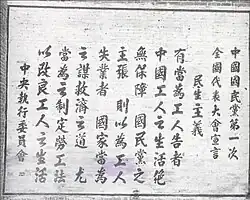 中國國民黨第一次
全國代表大會宣言
民生主義
有當為工人告者
中國工人之生活絕
無保障國民黨之
主張則以為工人
失業者國家當為
之謀救濟之道尤
當為之制定勞工法
以改良工人之生活
中央執行委員會